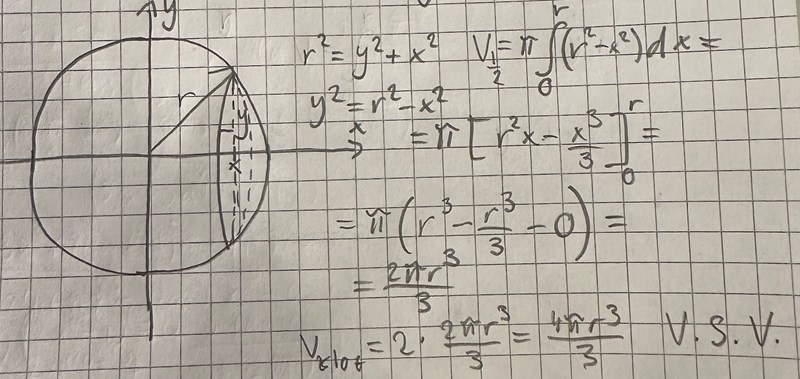 y
r² = y² + x² V½ = π ∫₀ʳ (r² - x²) dx =
r
y² = r² - x²
y
x
= π [r²x - x³/3]₀ʳ =
x
= π (r³ - r³/3 - 0) =
= 2πr³/3
Vklot = 2 · 2πr³/3 = 4πr³/3 V.S.V.